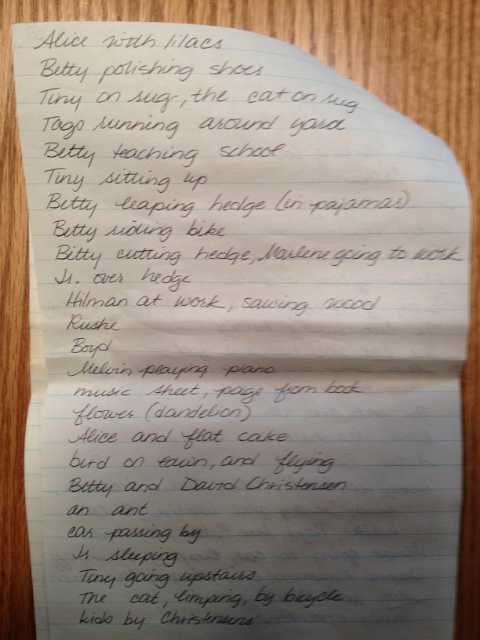 Alice with lilacs
Betty polishing shoes
Tiny on rug, the cat on rug
Tags running around yard
Betty teaching school
Tiny sitting up
Betty leaping hedge (in pajamas)
Betty riding bike
Betty cutting hedge, Marlene going to work
Jr. over hedge
Hilman at work, sawing wood
Boyd
Melvin playing piano
music sheet, page from book
flower (dandelion)
Alice and flat cake
bird on lawn, and flying
Betty and David Christensen
an ant
car passing by
Jr. sleeping
Tiny going upstairs
The cat, limping, by bicycle
kids by Christensens